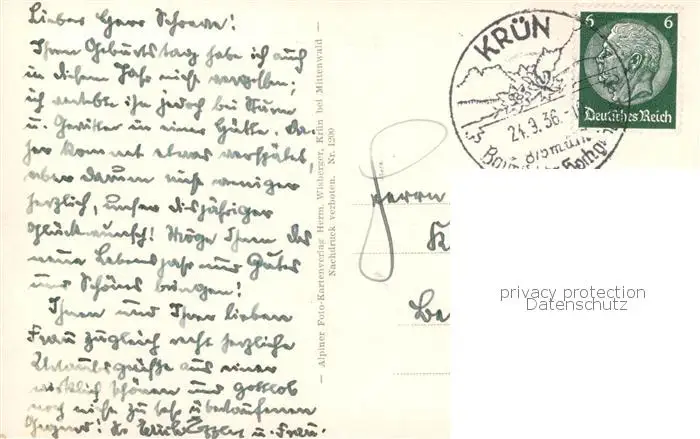 Lieber Herr Schreve!
Ihren Geburtstag habe ich auch
in diesem Jahr nicht vergessen;
ich verlebte ihn jedoch bei Sturm
u. Gewitter in einer Hütte. Da-
her kommt etwas verspätet,
aber darum nicht weniger
herzlich, unser diesjähriger
Glückwunsch! Möge Ihnen das
neue Lebensjahr nur Gutes
und Schönes bringen!
Ihnen und Ihrer lieben
Frau zugleich recht herzliche
Urlaubsgrüße aus einer
wirklich schönen und Gottlob
noch nicht zu sehr überlaufenen
Gegend! Ihr u. Frau.
— Alpiner Foto-Kartenverlag Herm. Wisberger, Krün bei Mittenwald —
Nachdruck verboten. Nr. 1200
KRÜN
24.9.36
6 6
Deutsches Reich
Herrn
K
Be
privacy protection
Datenschutz